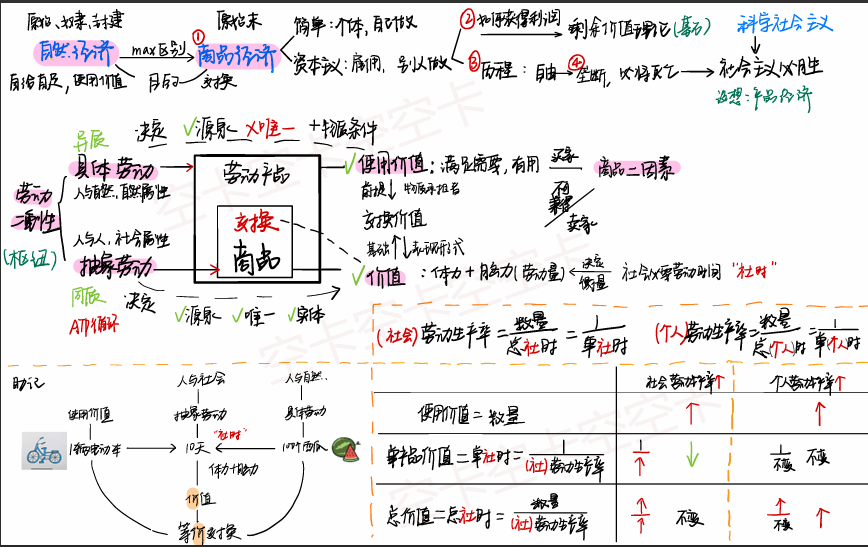 原始、奴隶、封建
原始末
自然经济
max区别
①
商品经济
自给自足,使用价值
目的
交换
简单:个体,自己做
资本主义:雇佣,别人做
②如何获得利润
剩余价值理论(基石)
③历程:自由
④
垄断,必将灭亡
科学社会主义
社会主义必胜
设想:产品经济
异质
决定
✓源泉
X唯一
+物质条件
具体劳动
人与自然,自然属性
劳动
二重性
(枢纽)
人与人,社会属性
抽象劳动
同质
决定
✓源泉
✓唯一
✓实体
劳动产品
交换
商品
✓使用价值:满足需要,有用
买家
不可
兼得
卖家
商品二因素
物质承担者
交换价值
基础
表现形式
✓价值:体力+脑力(劳动量)
决定
衡量
社会必要劳动时间
"社时"
(社会)劳动生产率=数量/总社时=1/单社时
(个人)劳动生产率=数量/总(个人)时=1/单(个人)时
助记
人与社会
人与自然
使用价值
抽象劳动
具体劳动
"社时"
10天
体力+脑力
价值
等价交换
社会劳动生产率↑
个人劳动生产率↑
使用价值=数量
↑
↑
单社时=1/(社)劳动生产率
1/↑
↓
1/不变
不变
总价值=总社时=数量/(社)劳动生产率
↑/↑
不变
↑/不变
↑
空卡空卡空卡